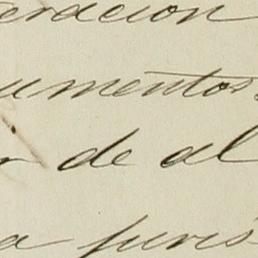 eracion
umentos
de al
a juris